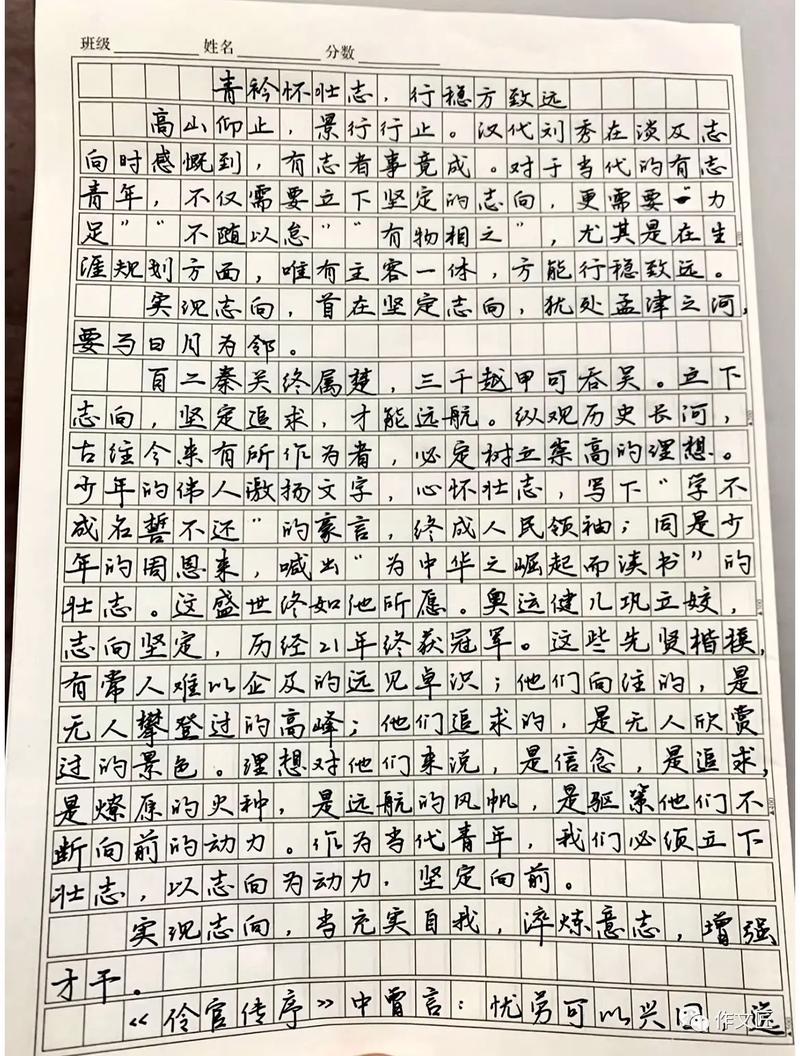 班级 姓名 分数
青衿怀壮志，行稳方致远
高山仰止，景行行止。汉代刘秀在谈及志
向时感慨到，有志者事竟成。对于当代的有志
青年，不仅需要立下坚定的志向，更需要“力
足”“不随以怠”“有物相之”，尤其是在生
涯规划方面，唯有主客一体，方能行稳致远。
实现志向，首在坚定志向，犹处孟津之河，
要与日月为邻。
百二秦关终属楚，三千越甲可吞吴。立下
志向，坚定追求，才能远航。纵观历史长河，
古往今来有所作为者，必定树立崇高的理想。
少年的伟人激扬文字，心怀壮志，写下“学不
成名誓不还”的豪言，终成人民领袖；同是少
年的周恩来，喊出“为中华之崛起而读书”的
壮志。这盛世终如他所愿。奥运健儿巩立姣，
志向坚定，历经21年终获冠军。这些先贤楷模，
有常人难以企及的远见卓识；他们向往的，是
无人攀登过的高峰；他们追求的，是无人欣赏
过的景色。理想对他们来说，是信念，是追求，
是燎原的火种，是远航的风帆，是驱策他们不
断向前的动力。作为当代青年，我们必须立下
壮志，以志向为动力，坚定向前。
实现志向，当充实自我，淬炼意志，增强
才干。
《伶官传序》中曾言：忧劳可以兴国，逸
作文匠